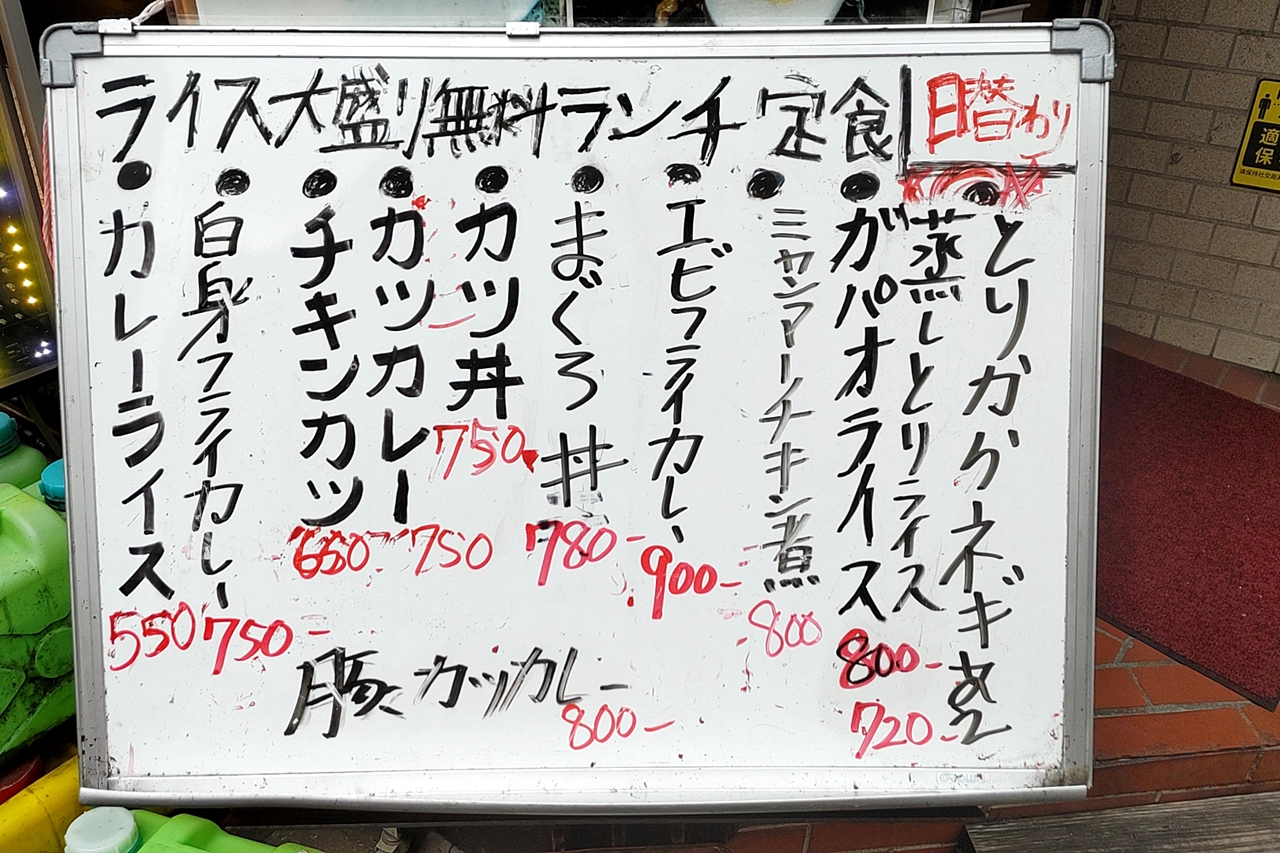 ライス大盛り無料ランチ定食
日替わり
とりから ネギ塩
720-
蒸しとりライス
ガパオライス
800-
ミャンマーチキン煮
800
エビフライカレー
900-
まぐろ丼
780-
カツ丼
750
カツカレー
750
チキンカツ
660
白身フライカレー
750-
カレーライス
550
豚カツカレー
800-
適
保